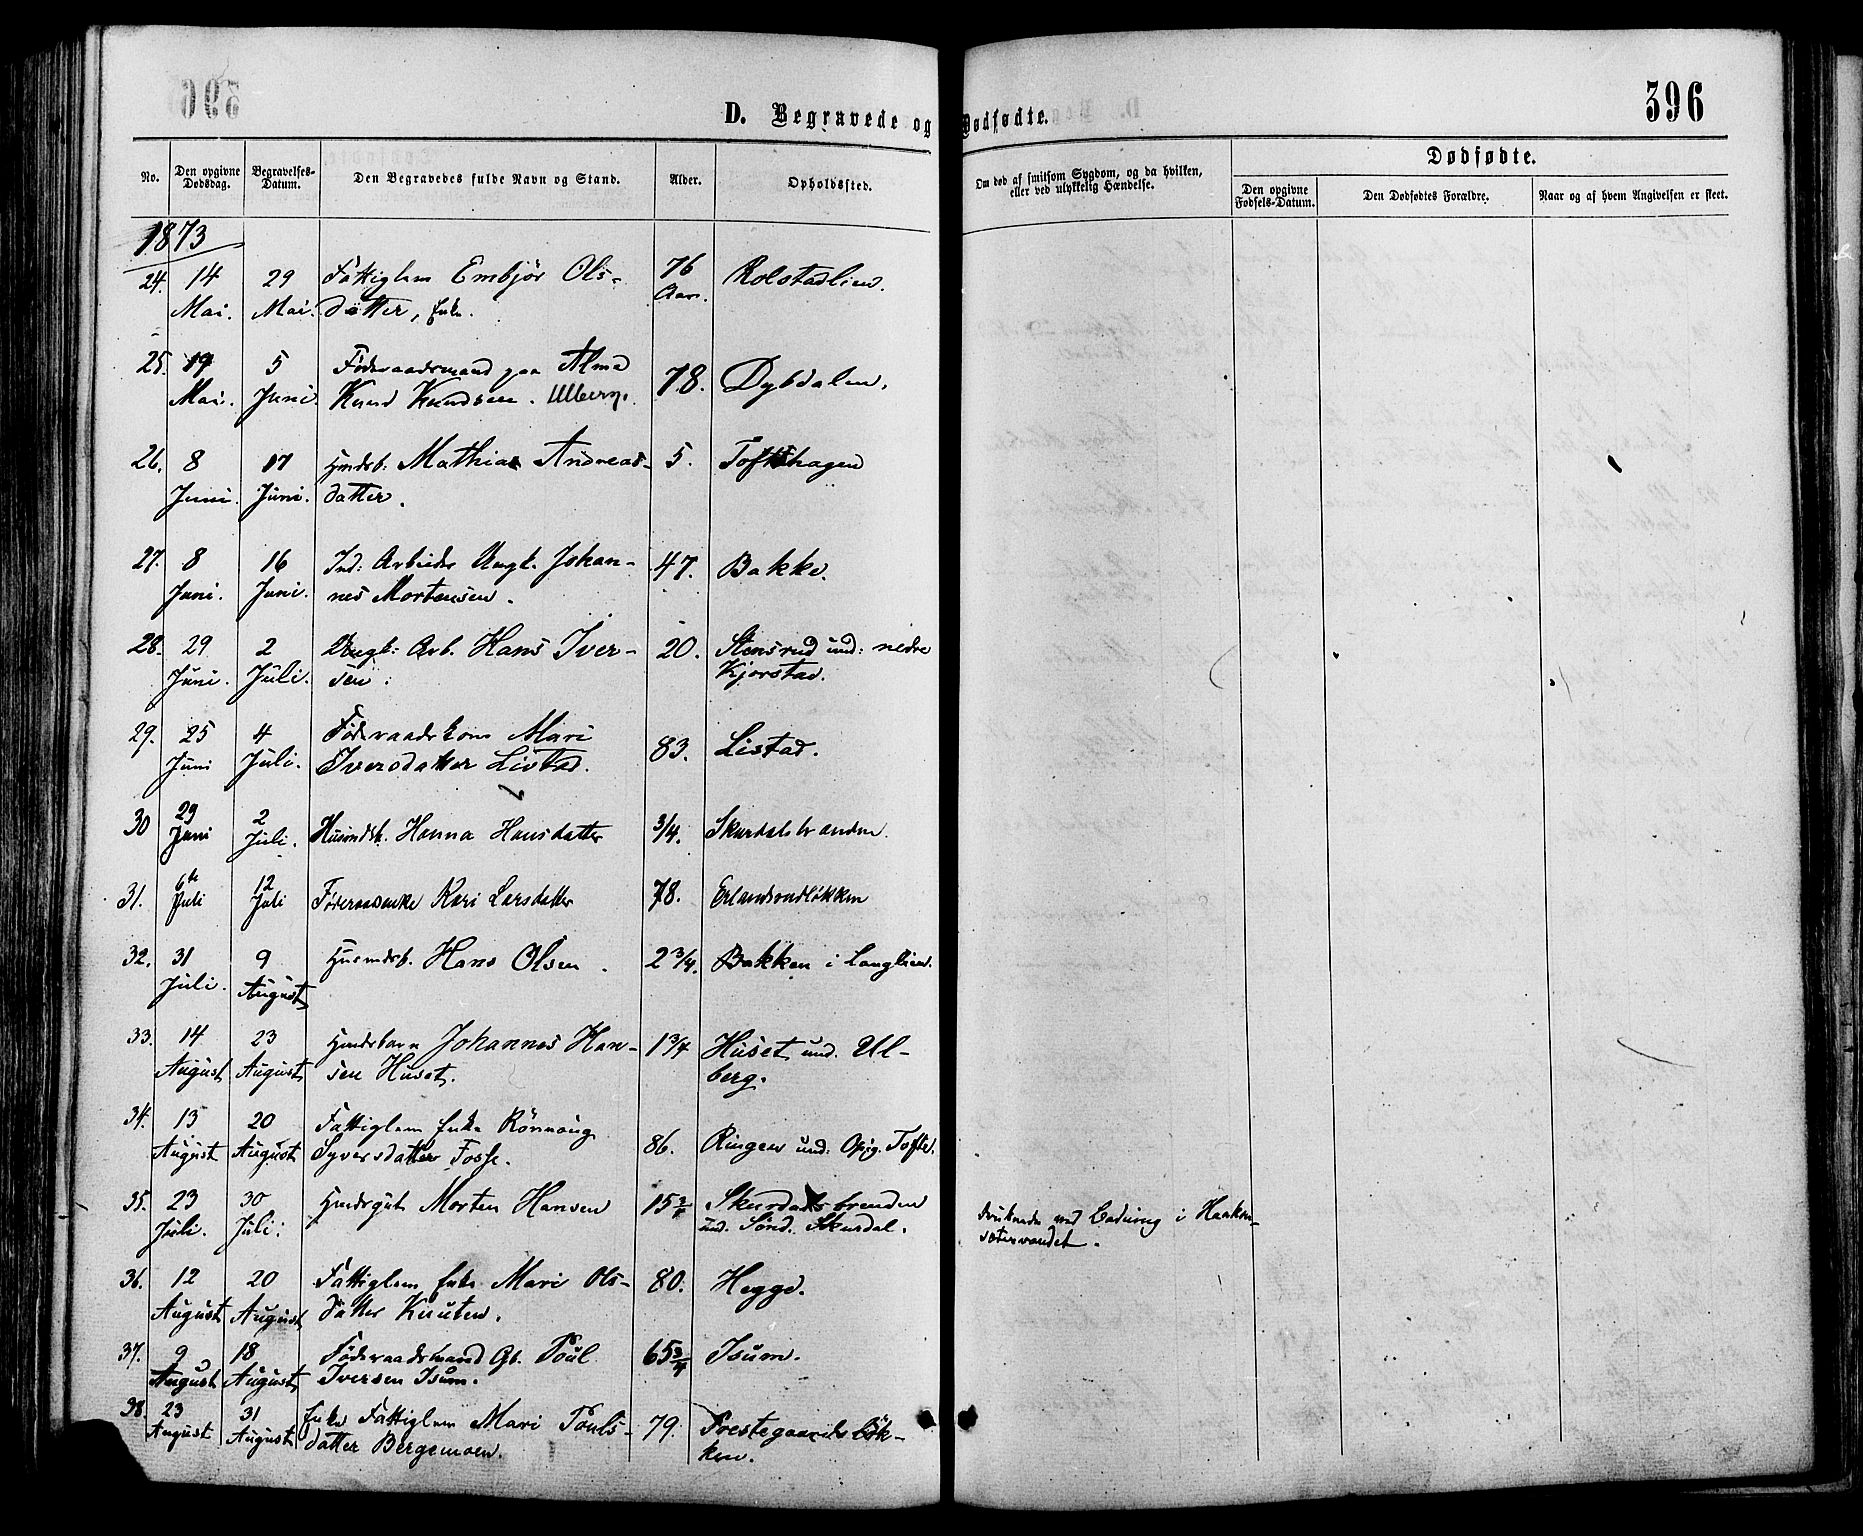 396
D. Begravede og Dødfødte.
No.
Den opgivne Dødsdag.
Begravelses-Datum.
Den Begravedes fulde Navn og Stand.
Alder.
Opholdssted.
Om død af smitsom Sygdom, og da hvilken, eller ved ulykkelig Hændelse.
Dødfødte.
Den opgivne Fødsels-Datum.
Den Dødfødtes Forældre.
Naar og af hvem Angivelsen er skeet.
1873
24. 14 29 Fattiglem Embjör Ols- 76 Rolstadlien.
Mai. Mai. datter, Enke. Aar.
25. 19 5 Föderaadsmand paa Alma 78. Dybdalen.
Mai. Juni. Knud Knudsen. Ulberg.
26. 8 17 Hmdsb. Mathia Andreas- 5. Toftehagen
Juni. Juni. datter.
27. 8 16 Ind: Arbeider Ungk. Johan- 47. Bakke.
Juni. Juni. nes Mortensen.
28. 29 2 Ungk: Arb. Hans Iver- 20. Stensrud und: nedre
Juni. Juli. sen. Kjorstad.
29. 25 4 Föderaadskone Mari 83. Listad.
Juni Juli. Iversdatter Listad.
30 29 2 Husmdsb. Hanna Hansdatter 3/4. Skurdalsbranden.
Juni Juli.
31. 6te 12 Föderaadsenke Kari Larsdatter 78. Erlandsrudløkken
Juli Juli
32. 31 9 Husmdsb. Hans Olsen. 2 3/4. Bakken i Langlien.
Juli. August
33. 14 23 Hmdsbarn Johannes Han- 1 3/4 Huset und. Ul-
August August sen Huset. berg.
34. 13 20 Fattiglem Enke Rönnoug 86. Ringen und: Tofte.
August August Syversdatter Fosse.
35. 23 30 Hmdsgut Morten Hansen 15 3/4 Skurdalsbrenden
Juli. Juli. und. Sönd. Skurdal.
druknede ved Badning i
vandet.
36. 12 20 Fattiglem Enke Mari Ols- 80. Hegge.
August August datter Knuten.
37. 9 18 Föderaadsmand Gb. Poul 65 3/4 Isum.
August August Iversen Isum.
38. 23 31 Enke Fattiglem Mari Pouls- 79. Prestegaardslök-
August August datter Bergemoen. ken.